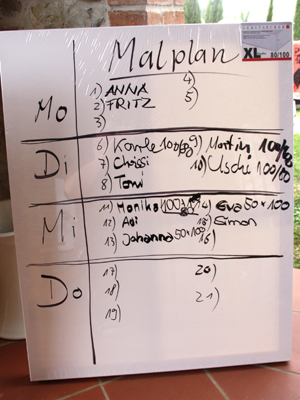 Malplan
XL
80/100
Mo
1) ANNA 4)
2) FRITZ 5)
3)
Di
6 Karole 100/80 9) Martin 100/80
7) Chrissi 10) Uschi 100/80
8) Toni
Mi
11) Monika 100 14) Eva 50x100
12) Adi 15) Simon
13) Johanna 50x100 16)
Do
17) 20)
18)
19) 21)